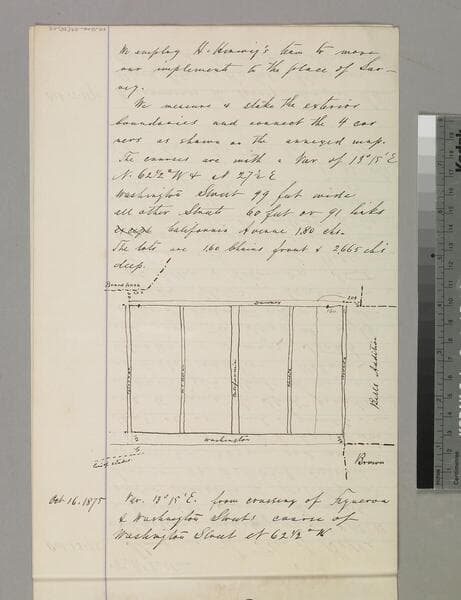 We employ H. Hennwig's team to move
our implements to the place of Sur-
vey.
We measure & stake the exterior
boundaries and connect the 4 cor
ners as shown on the annexed map.
The courses are with a Var. of 13° 15' E
N. 62 1/2° W & N 27 1/2 E
Washington Street 99 feet wide
all other Streets 60 feet or 91 links
except California Avenue 1.80 chs.
The lots are 1.60 Chains front & 2,665 chs
deep.
Bells Addition
California
Washington
Brown
Oct 16. 1875
Var. 13° 15' E. from crossing of Figueroa
& Washington Streets course of
Washington Street N 62 1/2° W
Kodak